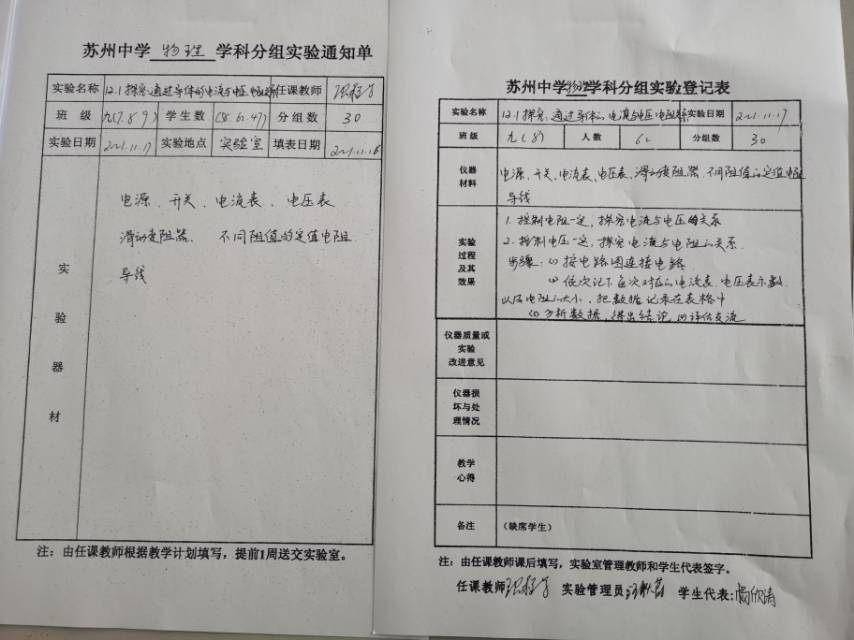 苏州中学 物理 学科分组实验通知单
实验名称 12.1探究通过导体的电流与电压电阻 任课教师
班 级 九(7.8.9) 学生数 (58.62.47) 分组数 30
实验日期 2021.11.17 实验地点 实验室 填表日期 2021.11.16
实验器材
电源、开关、电流表、电压表
滑动变阻器、不同阻值的定值电阻
导线
注：由任课教师根据教学计划填写，提前1周送交实验室。
苏州中学物理学科分组实验登记表
实验名称 12.1探究通过导体的电流与电压电阻 实验日期 2021.11.17
班级 九(8) 人数 62 分组数 30
仪器材料
电源、开关、电流表、电压表、滑动变阻器、不同阻值的定值电阻
导线
实验过程及其效果
1. 控制电阻一定，探究电流与电压的关系
2. 控制电压一定，探究电流与电阻的关系
步骤：(1) 按电路图连接电路
(2) 依次记下每次对应的电流表、电压表示数
以及电阻的大小，把数据记录在表格中
(3) 分析数据，得出结论 (4) 评估交流
仪器质量或实验改进意见
仪器损坏与处理情况
教学心得
备注 （缺席学生）
注：由任课教师课后填写，实验室管理教师和学生代表签字。
任课教师 实验管理员 学生代表: